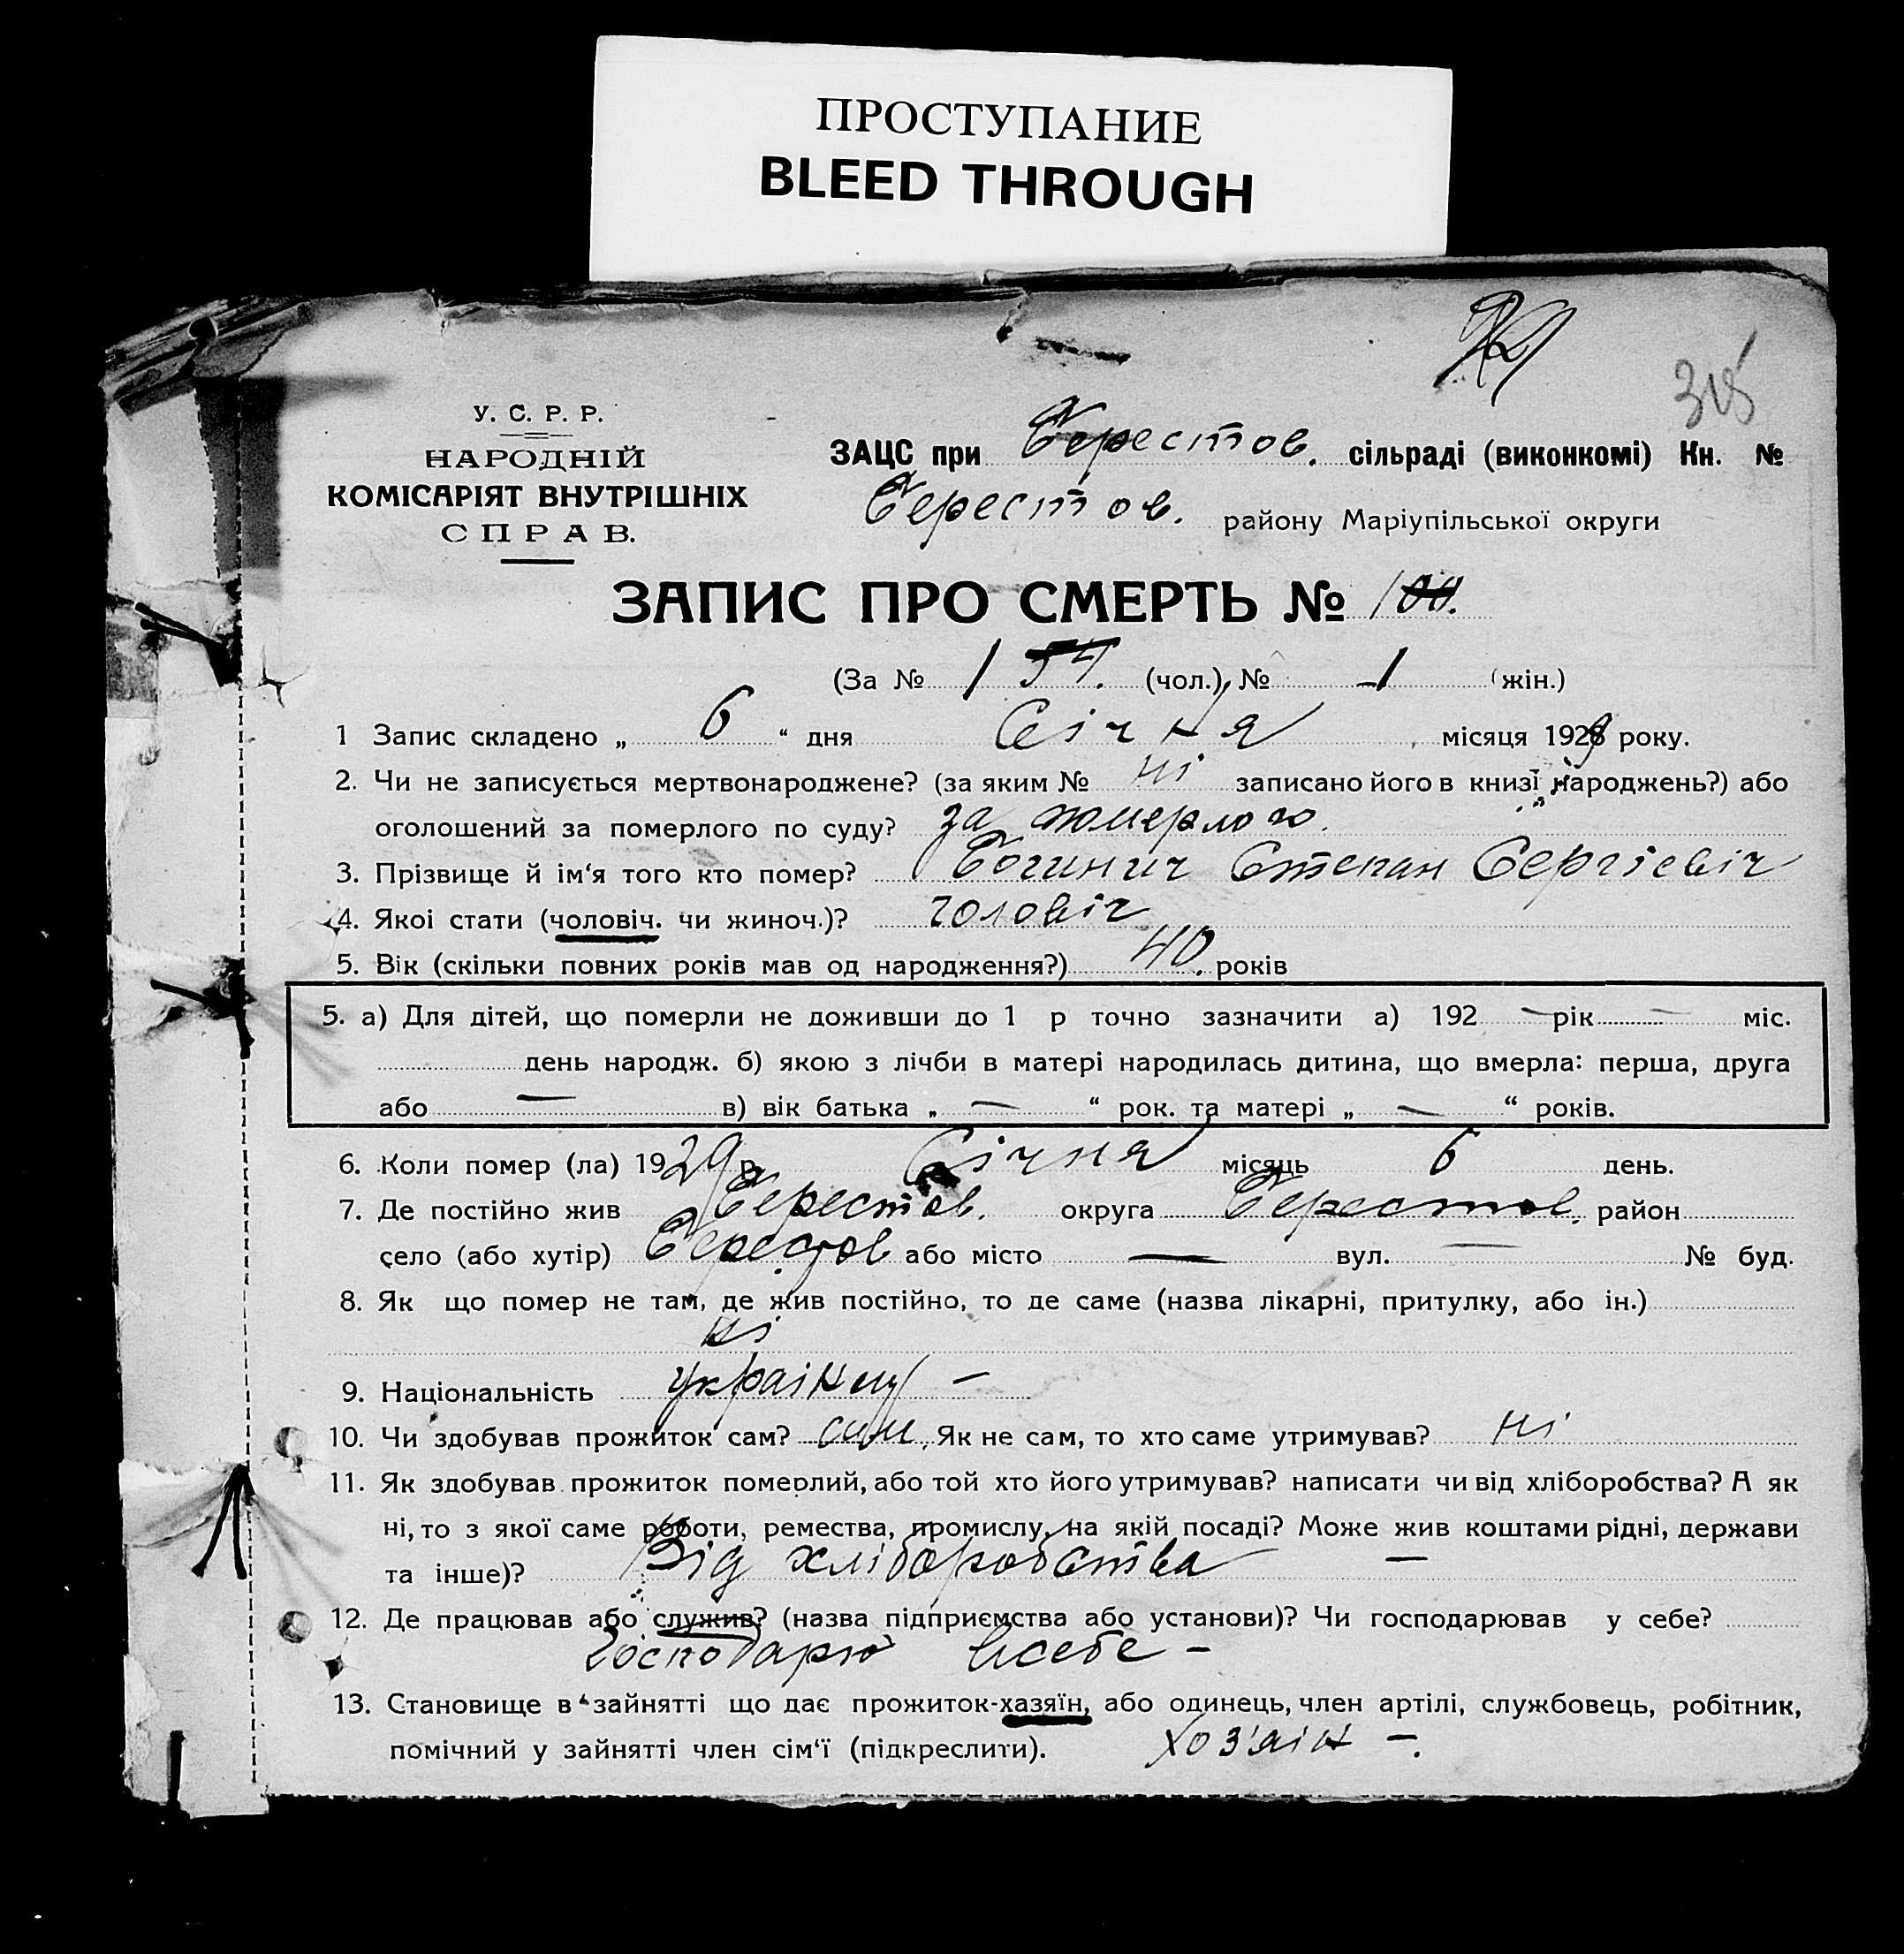 ПРОСТУПАНИЕ
BLEED THROUGH
315
У. С. Р. Р.
НАРОДНІЙ
КОМІСАРІЯТ ВНУТРІШНІХ
СПРАВ.
ЗАЦС при Берестов. сільраді (виконкомі) Кн. №
Берестов. району Маріупільської округи
ЗАПИС ПРО СМЕРТЬ № 1
(За № 1 54. (чол.), № -1 (жін.)
1 Запис складено „ 6 “ дня Січня місяця 1929 року.
2. Чи не записується мертвонароджене? (за яким № ні записано його в книзі народжень?) або
оголошений за померлого по суду? за померлого.
3. Прізвище й ім‘я того кто помер? Степан Сергієвіч
4. Якоі стати (чоловіч. чи жиноч.)? чоловіч
5. Вік (скільки повних років мав од народження?) 40. років
5. а) Для дітей, що померли не доживши до 1 р точно зазначити а) 192 — рік — міс.
день народж. б) якою з лічби в матері народилась дитина, що вмерла: перша, друга
або — в) вік батька „ — “ рок. та матері „ — “ років.
6. Коли помер (ла) 1929 р. Січня місяць 6 день.
7. Де постійно жив Берестов. округа Берестов. район
село (або хутір) Берестов або місто — вул. — № буд.
8. Як що помер не там, де жив постійно, то де саме (назва лікарні, притулку, або ін.)
ні
9. Національність українец —
10. Чи здобував прожиток сам? сам. Як не сам, то хто саме утримував? ні
11. Як здобував прожиток померлий, або той хто його утримував? написати чи від хліборобства? А як
ні, то з якої саме роботи, ремества, промислу, на якій посаді? Може жив коштами рідні, держави
та інше)? Від хліборобства —
12. Де працював або служив? (назва підприємства або установи)? Чи господарював у себе?
Господарю всебе —
13. Становище в зайнятті що дає прожиток-хазяїн, або одинець, член артілі, службовець, робітник,
помічний у зайнятті член сім‘ї (підкреслити). хоз'яін —.